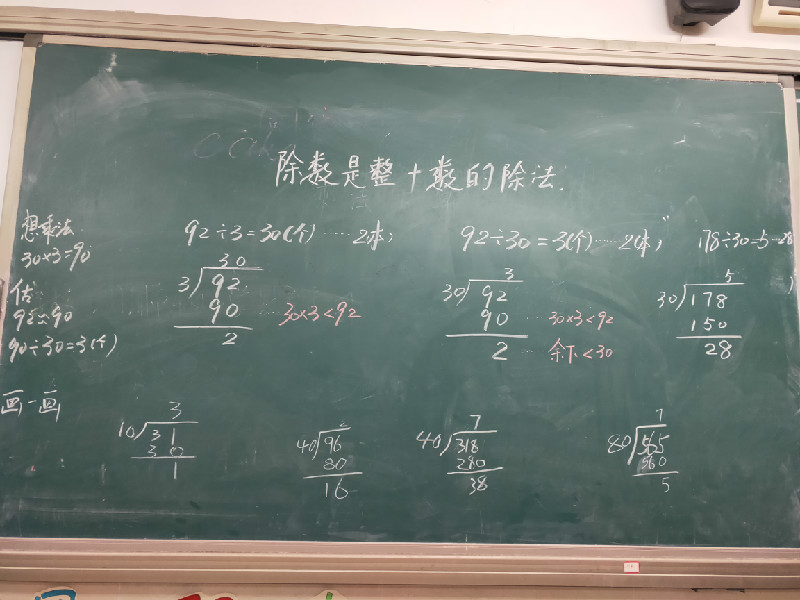 除数是整十数的除法.
想乘法
30×3=90
估
92≈90
90÷30=3(个)
画一画
92÷3=30(个)……2(本);
30
3)92
90 … 30×3<92
2
92÷30=3(个)……2(本);
3
30)92
90 … 30×3<92
2 … 余下<30
178÷30=5…28
5
30)178
150
28
3
10)31
30
1
2
40)96
80
16
7
40)318
280
38
7
80)565
560
5